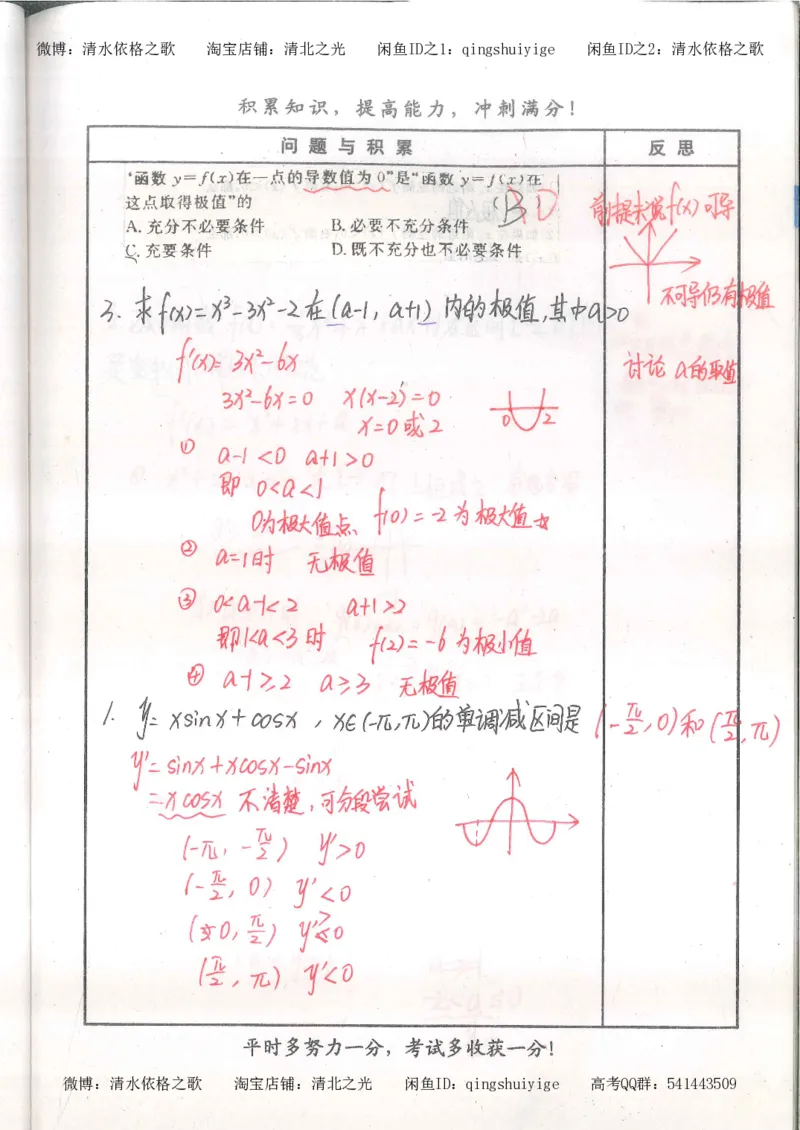 微博：清水依格之歌 淘宝店铺：清北之光 闲鱼ID之1：qingshuiyige 闲鱼ID之2：清水依格之歌
积累知识，提高能力，冲刺满分！
问题与积累 反思
“函数 y=f(x)在一点的导数值为 0”是“函数 y=f(x)在
这点取得极值”的 (B) D
A. 充分不必要条件 B. 必要不充分条件
C. 充要条件 D. 既不充分也不必要条件
前提未说f(x)可导
不可导仍有极值
3. 求f(x)=x³-3x²-2在(a-1, a+1)内的极值,其中a>0
讨论 a的取值
f'(x)=3x²-6x
3x²-6x=0 x(x-2)=0
x=0或2
0 2
① a-1<0 a+1>0
即 0<a<1
0为极大值点, f(0)=-2为极大值
② a=1时 无极值
③ 0<a-1<2 a+1>2
即1<a<3时 f(2)=-6为极小值
④ a-1≥2 a≥3 无极值
1. y=xsinx+cosx , x∈(-π,π)的单调减区间是 (-π/2,0)和(π/2,π)
y'=sinx+xcosx-sinx
=xcosx 不清楚,可分段尝试
(-π, -π/2) y'>0
(-π/2, 0) y'<0
(0, π/2) y'>0
(π/2, π) y'<0
平时多努力一分，考试多收获一分！
微博：清水依格之歌 淘宝店铺：清北之光 闲鱼ID：qingshuiyige 高考QQ群：541443509